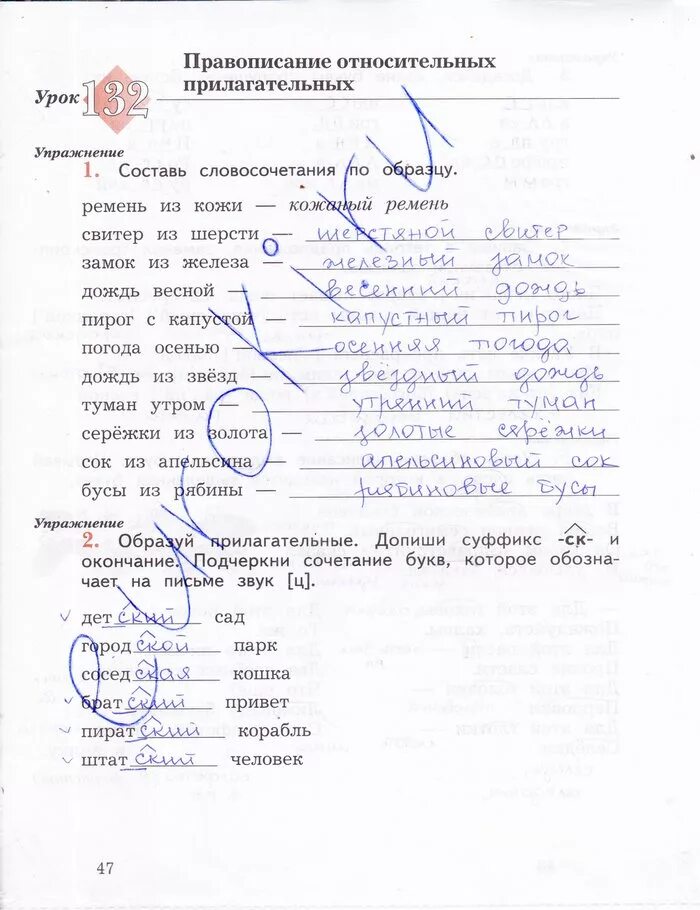 Урок 132
Правописание относительных
прилагательных
Упражнение
1. Составь словосочетания по образцу.
ремень из кожи — кожаный ремень
свитер из шерсти — шерстяной свитер
замок из железа — железный замок
дождь весной — весенний дождь
пирог с капустой — капустный пирог
погода осенью — осенняя погода
дождь из звёзд — звёздный дождь
туман утром — утренний туман
серёжки из золота — золотые серёжки
сок из апельсина — апельсиновый сок
бусы из рябины — рябиновые бусы
Упражнение
2. Образуй прилагательные. Допиши суффикс -ск- и
окончание. Подчеркни сочетание букв, которое обозна-
чает на письме звук [ц].
детский сад
городской парк
соседская кошка
братский привет
пиратский корабль
штатский человек
47